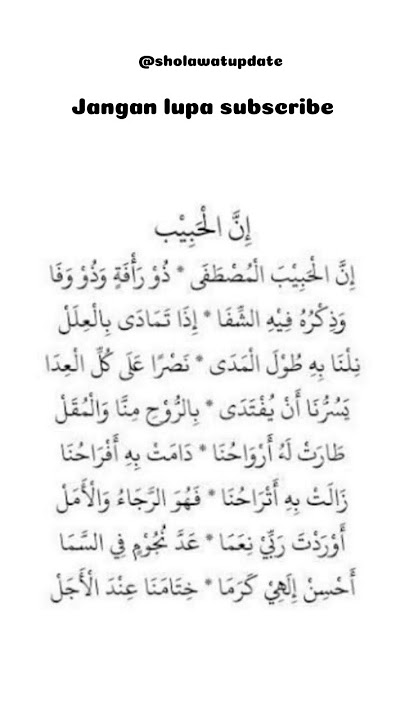 @sholawatupdate
Jangan lupa subscribe
إِنَّ الْحَبِيْب
إِنَّ الْحَبِيْبَ الْمُصْطَفَى * ذُوْ رَأْفَةٍ وَذُوْ وَفَا
وَذِكْرُهُ فِيْهِ الشِّفَا * إِذَا تَمَادَى بِالْعِلَلْ
نِلْنَا بِهِ طُوْلَ الْمَدَى * نَصْرًا عَلَى كُلِّ الْعِدَا
يَسُرُّنَا أَنْ يُفْتَدَى * بِالرُّوْحِ مِنَّا وَالْمُقَلْ
طَارَتْ لَهُ أَرْوَاحُنَا * دَامَتْ بِهِ أَفْرَاحُنَا
زَالَتْ بِهِ أَتْرَاحُنَا * فَهُوَ الرَّجَاءُ وَالْأَمَلْ
أَوْرَدْتَ رَبِّيْ نِعَمَا * عَدَّ نُجُوْمٍ فِي السَّمَا
أَحْسِنْ إِلَهِيْ كَرَمَا * خِتَامَنَا عِنْدَ الْأَجَلْ